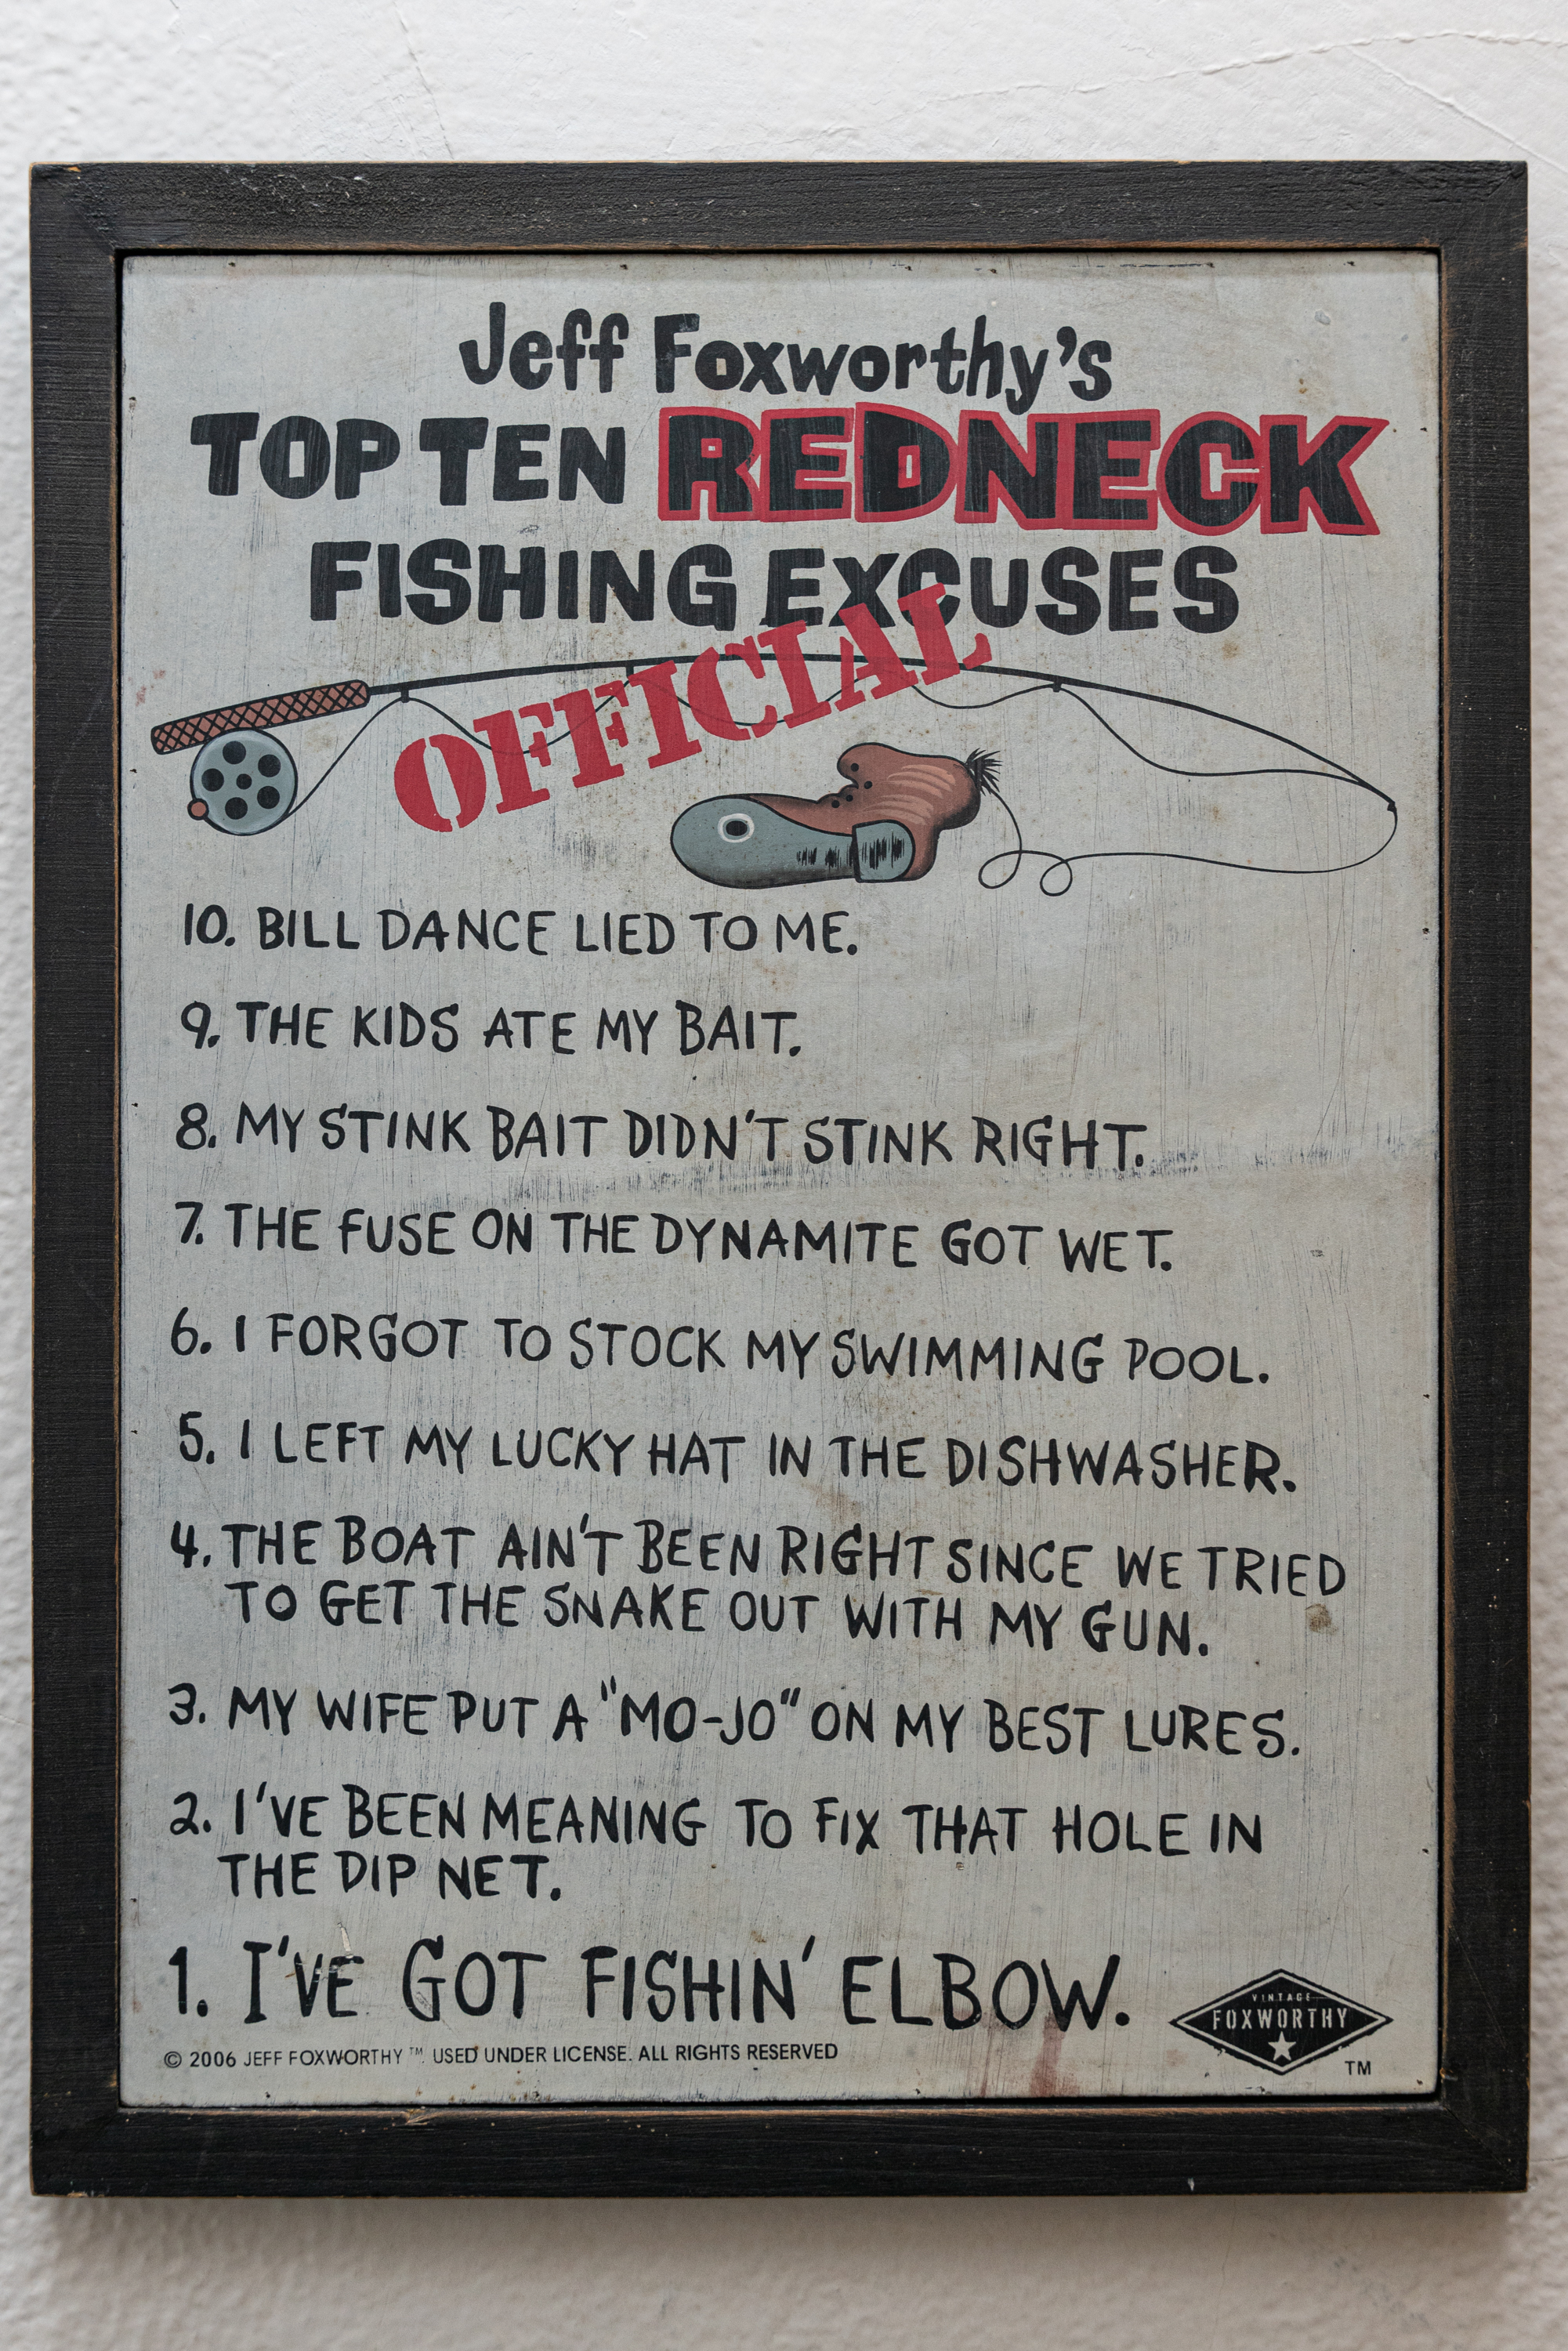 Jeff Foxworthy's
TOP TEN REDNECK
FISHING EXCUSES
OFFICIAL
10. BILL DANCE LIED TO ME.
9. THE KIDS ATE MY BAIT.
8. MY STINK BAIT DIDN'T STINK RIGHT.
7. THE FUSE ON THE DYNAMITE GOT WET.
6. I FORGOT TO STOCK MY SWIMMING POOL.
5. I LEFT MY LUCKY HAT IN THE DISHWASHER.
4. THE BOAT AIN'T BEEN RIGHT SINCE WE TRIED
TO GET THE SNAKE OUT WITH MY GUN.
3. MY WIFE PUT A "MO-JO" ON MY BEST LURES.
2. I'VE BEEN MEANING TO FIX THAT HOLE IN
THE DIP NET.
1. I'VE GOT FISHIN' ELBOW.
© 2006 JEFF FOXWORTHY™. USED UNDER LICENSE. ALL RIGHTS RESERVED
VINTAGE
FOXWORTHY
TM